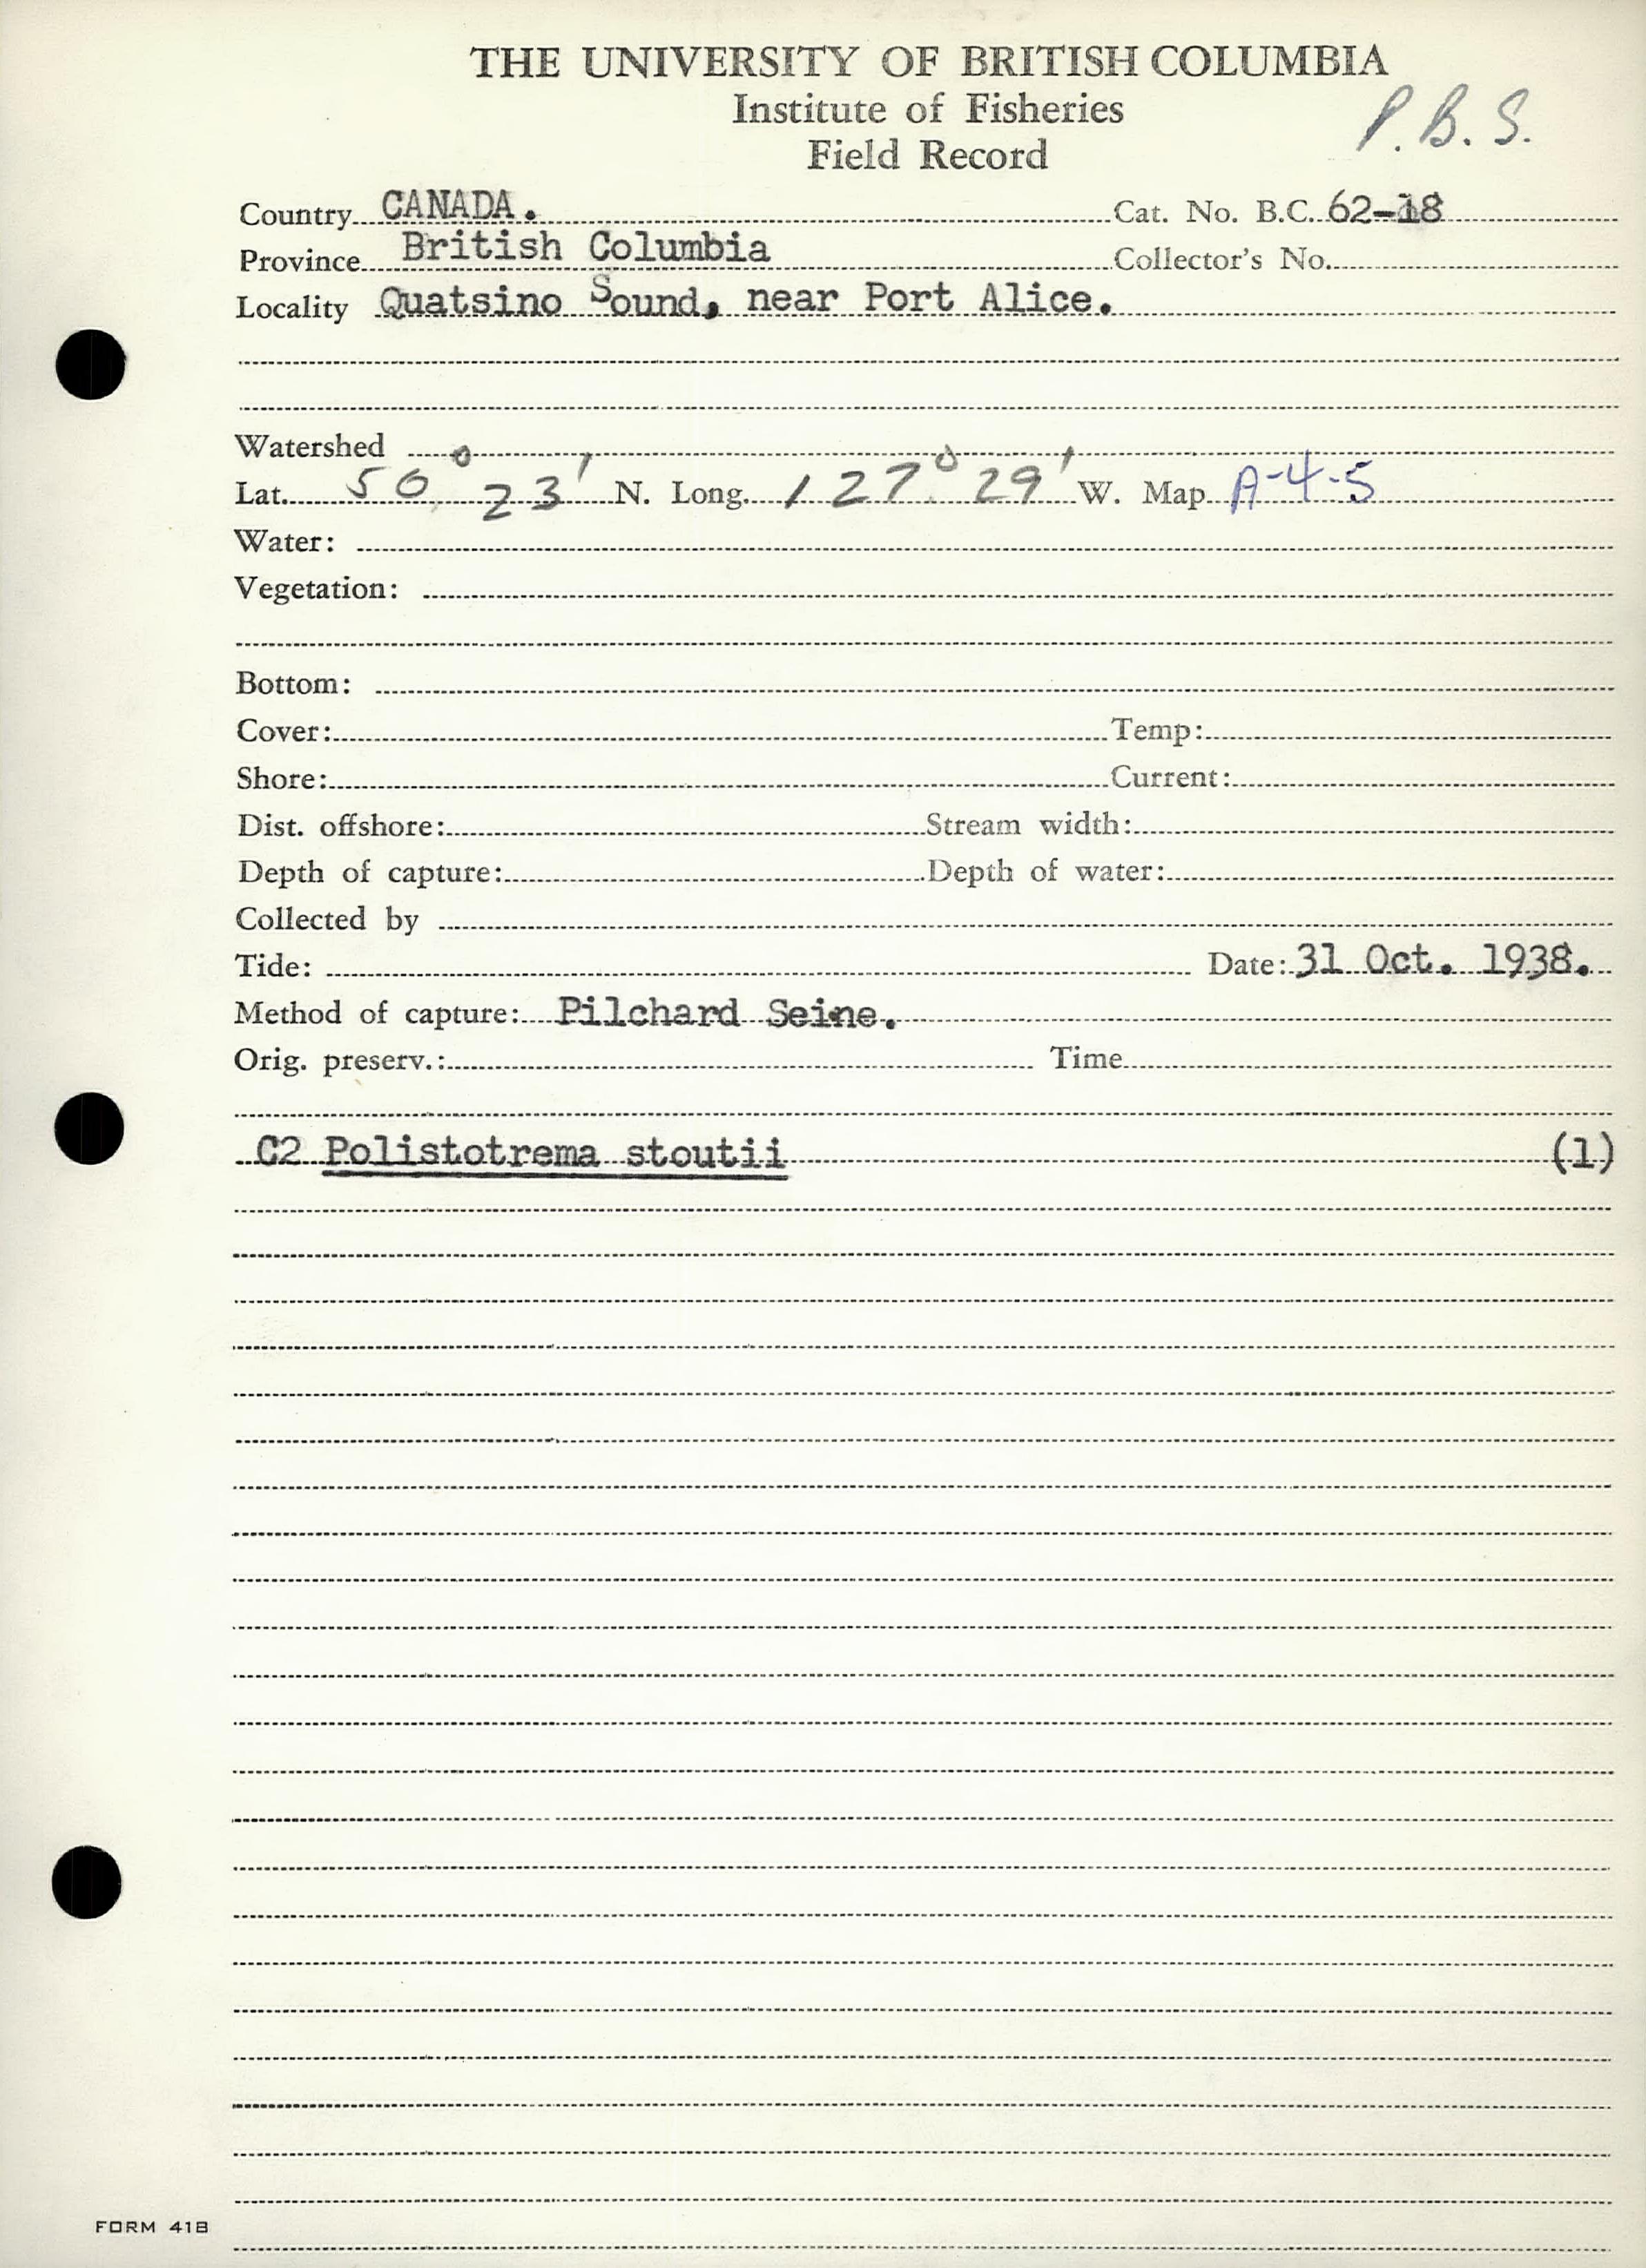 THE UNIVERSITY OF BRITISH COLUMBIA
Institute of Fisheries
P.B.S.
Field Record
Country CANADA. Cat. No. B.C. 62-18
Province British Columbia Collector's No.
Locality Quatsino Sound, near Port Alice.
Watershed
Lat. 50° 23' N. Long. 127° 29' W. Map A-4-5
Water:
Vegetation:
Bottom:
Cover: Temp:
Shore: Current:
Dist. offshore: Stream width:
Depth of capture: Depth of water:
Collected by
Tide: Date: 31 Oct. 1938.
Method of capture: Pilchard Seine.
Orig. preserv.: Time
C2 Polistotrema stoutii (1)
FORM 41B